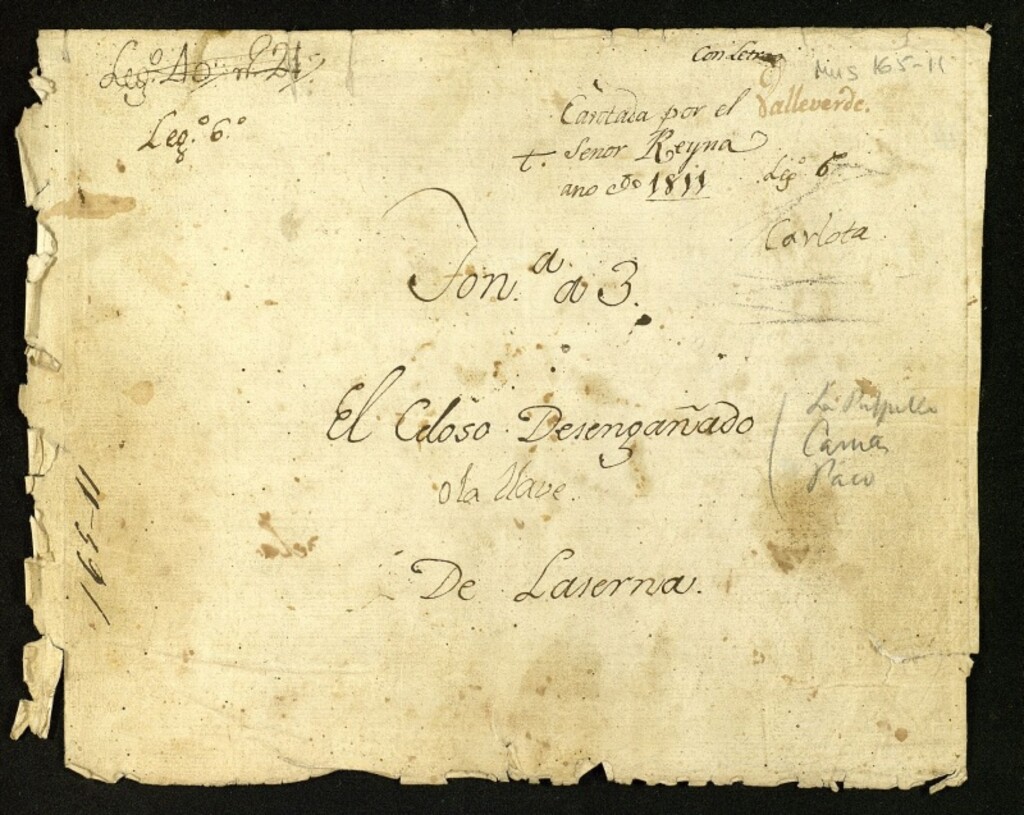 Leg.º 40. n.º 21.
Leg.º 6.º
Con Letra
Mus 165-11
Valleverde.
Cantada por el
t. Señor Reyna
ano de 1811
Leg.º 6.º
Carlota
Ton.a a 3.
El Celoso Desengañado
o la llave.
De Laserna.
Camas
Paco
165-11